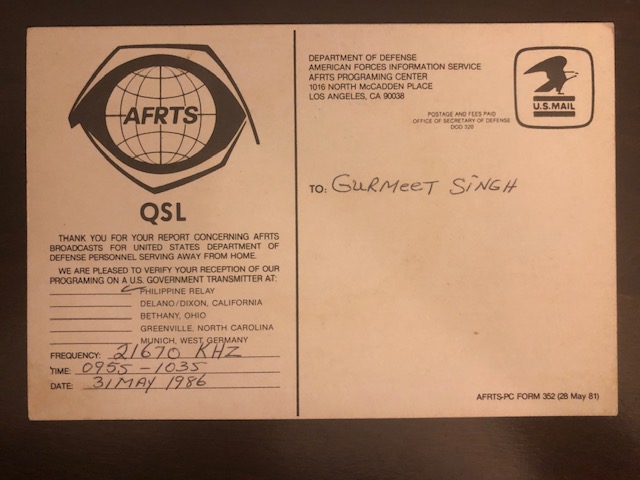 AFRTS
QSL
THANK YOU FOR YOUR REPORT CONCERNING AFRTS
BROADCASTS FOR UNITED STATES DEPARTMENT OF
DEFENSE PERSONNEL SERVING AWAY FROM HOME.
WE ARE PLEASED TO VERIFY YOUR RECEPTION OF OUR
PROGRAMING ON A U.S. GOVERNMENT TRANSMITTER AT:
✓ PHILIPPINE RELAY
DELANO/DIXON, CALIFORNIA
BETHANY, OHIO
GREENVILLE, NORTH CAROLINA
MUNICH, WEST GERMANY
FREQUENCY: 21670 KHZ
TIME: 0955 - 1035
DATE: 31 MAY 1986
DEPARTMENT OF DEFENSE
AMERICAN FORCES INFORMATION SERVICE
AFRTS PROGRAMING CENTER
1016 NORTH McCADDEN PLACE
LOS ANGELES, CA 90038
POSTAGE AND FEES PAID
OFFICE OF SECRETARY OF DEFENSE
DOD 320
U.S.MAIL
TO: GURMEET SINGH
AFRTS-PC FORM 352 (28 May 81)